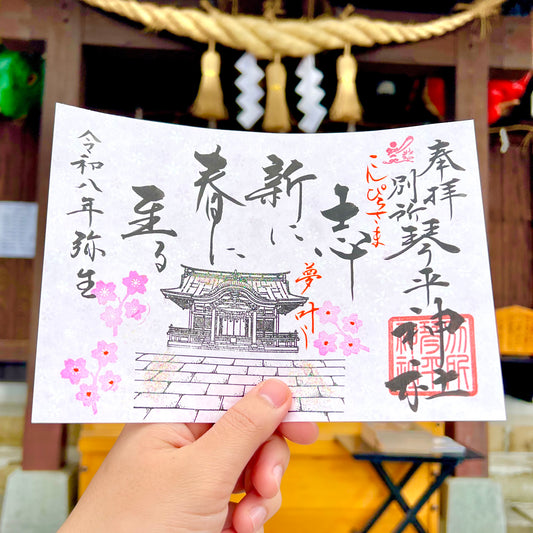 奉拝
別所琴平神社
こんぴらさま
志
新に、
春に
至る
夢叶う
令和八年弥生